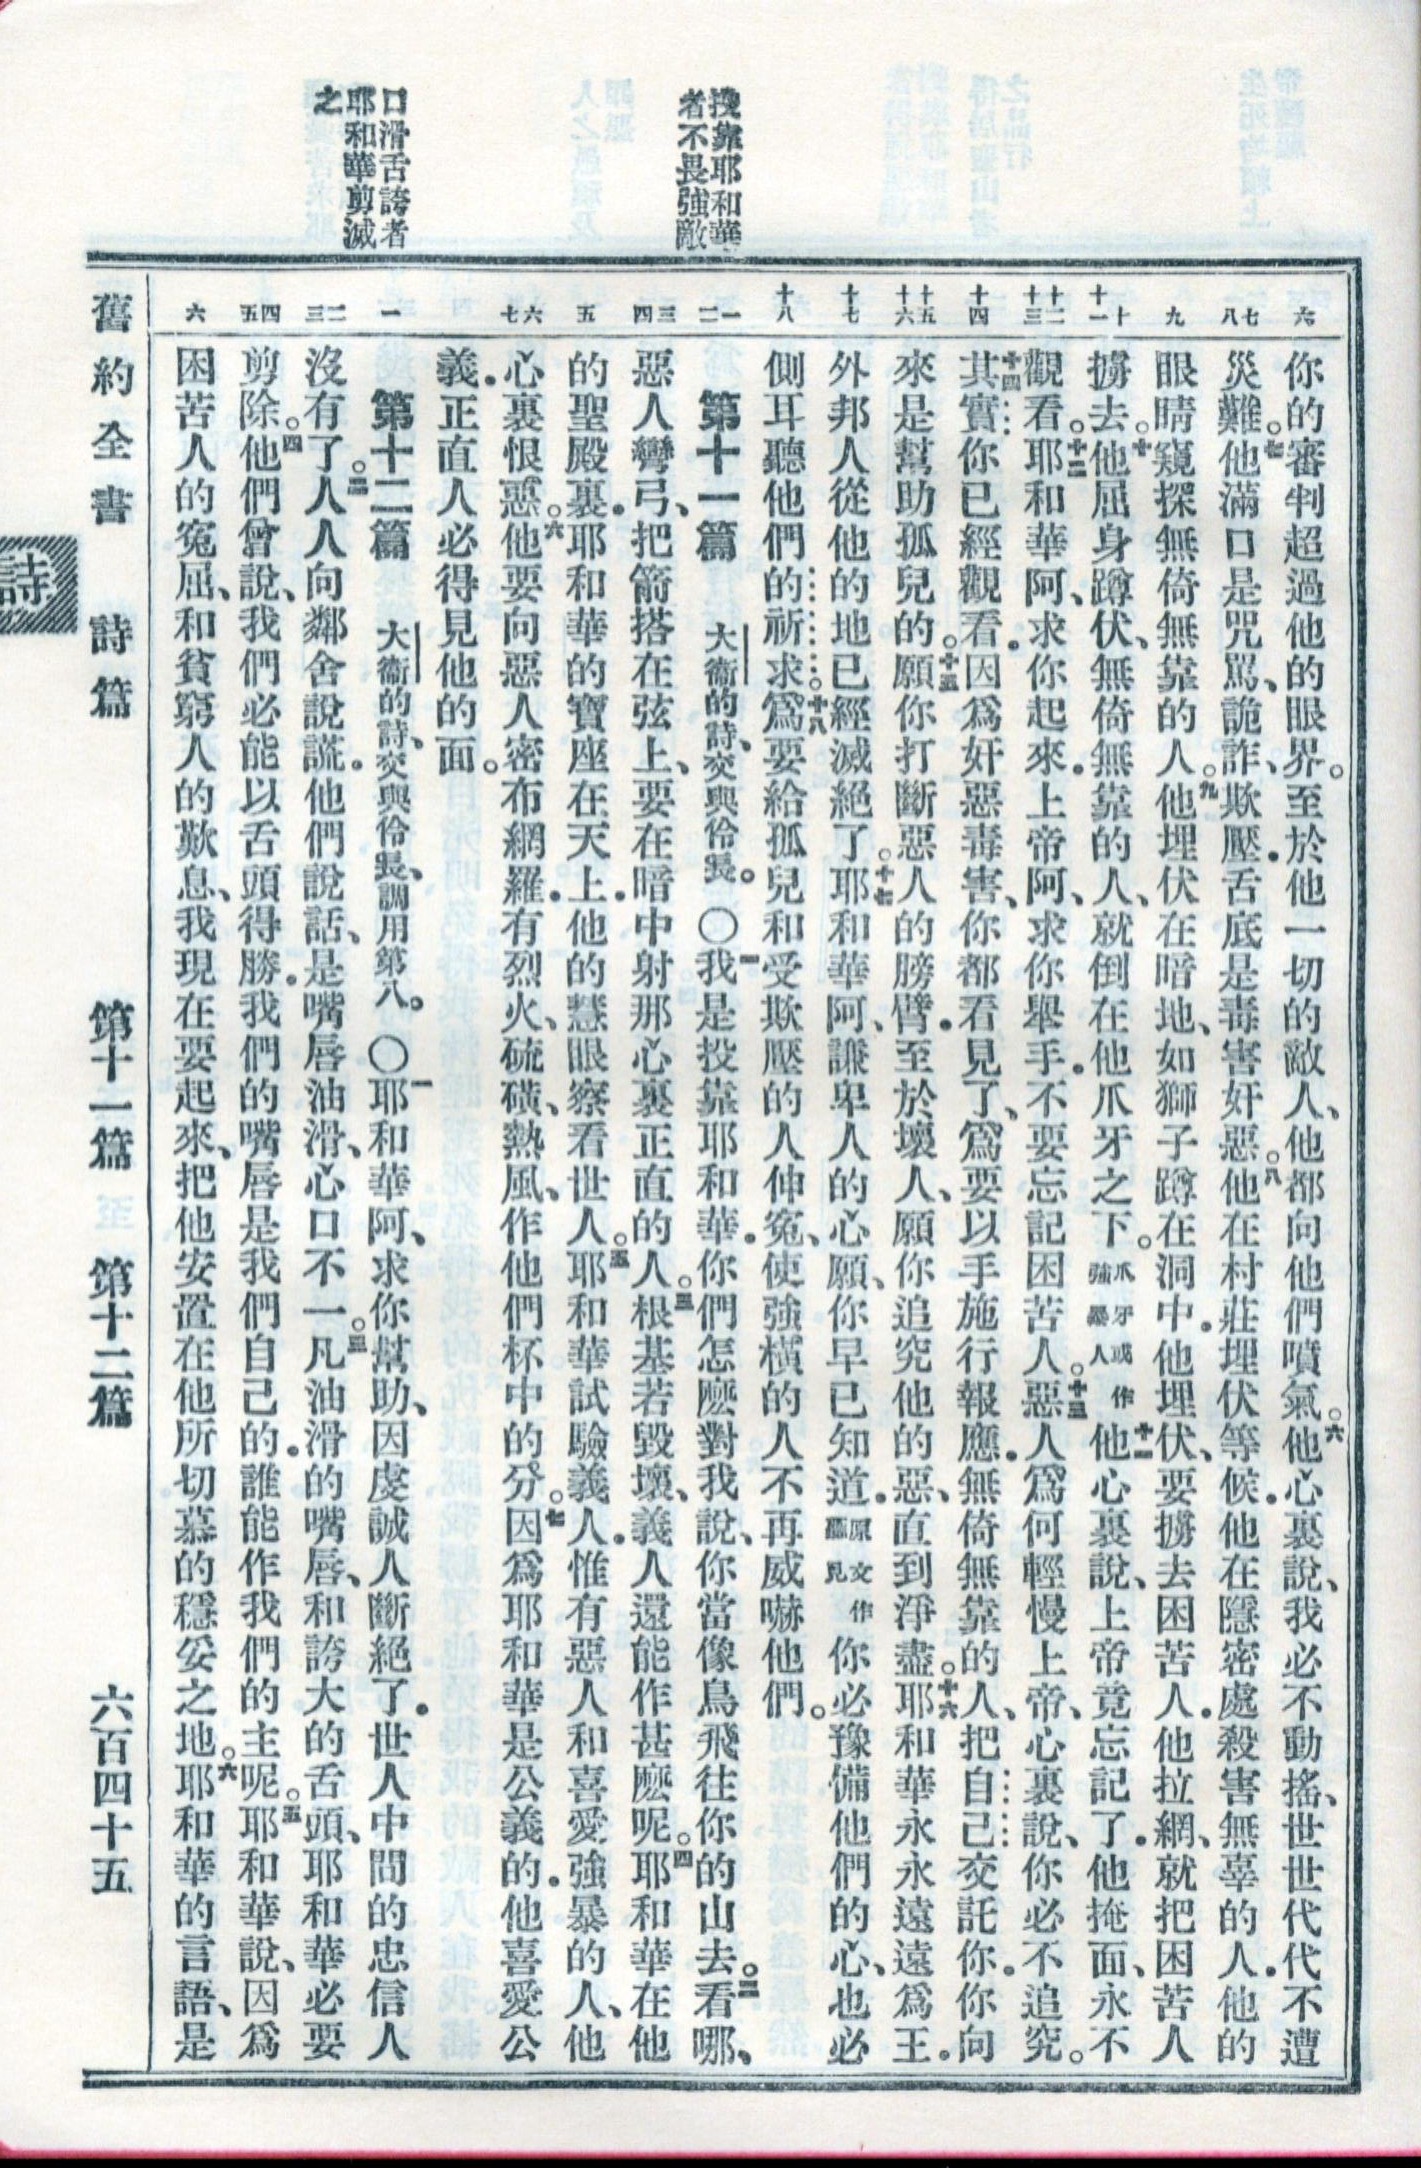 投靠耶和華
者不畏強敵
口滑舌誇者
耶和華剪滅
之
六
七
八
九
十
十一
十二
十三
十四
十五
十六
十七
十八
一
二
三
四
五
六
七
一
二
三
四
五
六
你的審判超過他的眼界。至於他一切的敵人、他都向他們噴氣。六他心裏說、我必不動搖、世世代代不遭
災難。七他滿口是咒罵、詭詐、欺壓.舌底是毒害奸惡。八他在村莊埋伏等候.他在隱密處殺害無辜的人.他的
眼睛窺探無倚無靠的人。九他埋伏在暗地、如獅子蹲在洞中.他埋伏、要擄去困苦人.他拉網、就把困苦人
擄去。十他屈身蹲伏、無倚無靠的人、就倒在他爪牙之下。爪牙或作強暴人十一他心裏說、上帝竟忘記了.他掩面、永不
觀看。十二耶和華阿、求你起來.上帝阿、求你舉手.不要忘記困苦人。十三惡人爲何輕慢上帝、心裏說、你必不追究。
十四其實你已經觀看.因爲奸惡毒害、你都看見了、爲要以手施行報應.無倚無靠的人、把自己交託你.你向
來是幫助孤兒的。十五願你打斷惡人的膀臂.至於壞人、願你追究他的惡、直到淨盡。十六耶和華永永遠遠爲王.
外邦人從他的地已經滅絕了。十七耶和華阿、謙卑人的心願、你早已知道.原文作聽見你必豫備他們的心、也必
側耳聽他們的祈求。十八爲要給孤兒和受欺壓的人伸冤、使強橫的人不再威嚇他們。
第十一篇 大衞的詩、交與伶長。〇一我是投靠耶和華.你們怎麽對我說、你當像鳥飛往你的山去。二看哪、
惡人彎弓、把箭搭在弦上、要在暗中射那心裏正直的人。三根基若毀壞、義人還能作甚麽呢。四耶和華在他
的聖殿裏.耶和華的寶座在天上.他的慧眼察看世人。五耶和華試驗義人.惟有惡人和喜愛強暴的人、他
心裏恨惡。六他要向惡人密布網羅.有烈火、硫磺、熱風、作他們杯中的分。七因爲耶和華是公義的.他喜愛公
義.正直人必得見他的面。
第十二篇 大衞的詩、交與伶長、調用第八。〇一耶和華阿、求你幫助、因虔誠人斷絕了.世人中間的忠信人
沒有了。二人人向鄰舍說謊.他們說話、是嘴唇油滑、心口不一。三凡油滑的嘴唇、和誇大的舌頭、耶和華必要
剪除。四他們曾說、我們必能以舌頭得勝.我們的嘴唇是我們自己的.誰能作我們的主呢。五耶和華說、因爲
困苦人的冤屈、和貧窮人的歎息、我現在要起來、把他安置在他所切慕的穩妥之地。六耶和華的言語、是
舊約全書 詩篇 第十一篇 第十二篇 六百四十五
詩